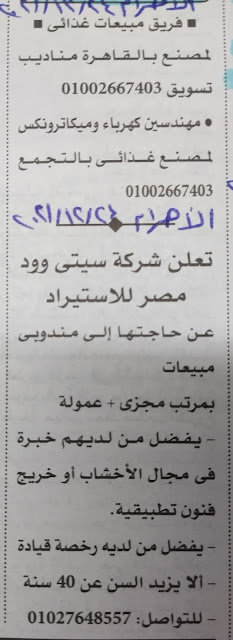 الأهرام ٢٠٢١/١٢/٢٤
• فريق مبيعات غذائى •
لمصنع بالقاهرة مناديب
تسويق 01002667403
• مهندسين كهرباء وميكاترونكس
لمصنع غذائى بالتجمع
01002667403
الأهرام ٢٠٢١/١٢/٢٤
تعلن شركة سيتى وود
مصر للاستيراد
عن حاجتها إلى مندوبى
مبيعات
بمرتب مجزى + عمولة
- يفضل من لديهم خبرة
فى مجال الأخشاب أو خريج
فنون تطبيقية.
- يفضل من لديه رخصة قيادة
- ألا يزيد السن عن 40 سنة
- للتواصل: 01027648557